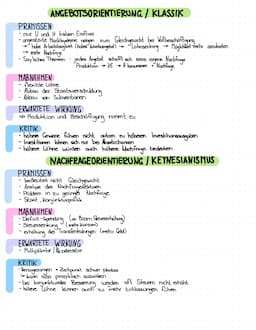 ANGEBOTSORIENTIERUNG / KLASSIK
PRÄMISSEN
- nur U und H haben Einfluss
- ungestörte Marktsysteme neigen zum Gleichgewicht bei Vollbeschäftigung
→ hohe Arbeitslosigkeit → Lohnsenkung →
→ mehr Nachfrage
- Say'sches Theorem: jedes Angebot schafft sich seine eigene Nachfrage
Produktion → → Nachfrage
MAßNAHMEN
- flexible Löhne
- Abbau der Staatsverschuldung
- Abbau von Subventionen
ERWARTETE WIRKUNG
⇒ Produktion und Beschäftigung nimmt zu
KRITIK
- höhere Gewinne führen nicht autom. zu höheren Investitionsausgaben
- Investitionen können sich nur bei Absatzchancen
- höhere Löhne würden auch höhere Nachfrage bedeuten
NACHFRAGEORIENTIERUNG / KEYNESIANISMUS
PRÄMISSEN
- bedeutet nicht Gleichgewicht
- Analyse der Nachfrageeffekten
- Problem in zu geringer Nachfrage
- Staat, Konjunkturpolitik
MAßNAHMEN
- Deficit-Spending
- Steuersenkung (mehr Konsum)
- Erhöhung der Transferleistungen (mehr Geld)
ERWARTETE WIRKUNG
- Multiplikator / Akzelerator
KRITIK
- Verzögerungen → Zeitpunkt schwer planbar
→ kann also prozyklisch auswirken
- bei konjunktureller Besserung werden oft Steuern nicht erhöht
- höhere Löhne können auch zu mehr Entlassungen führen